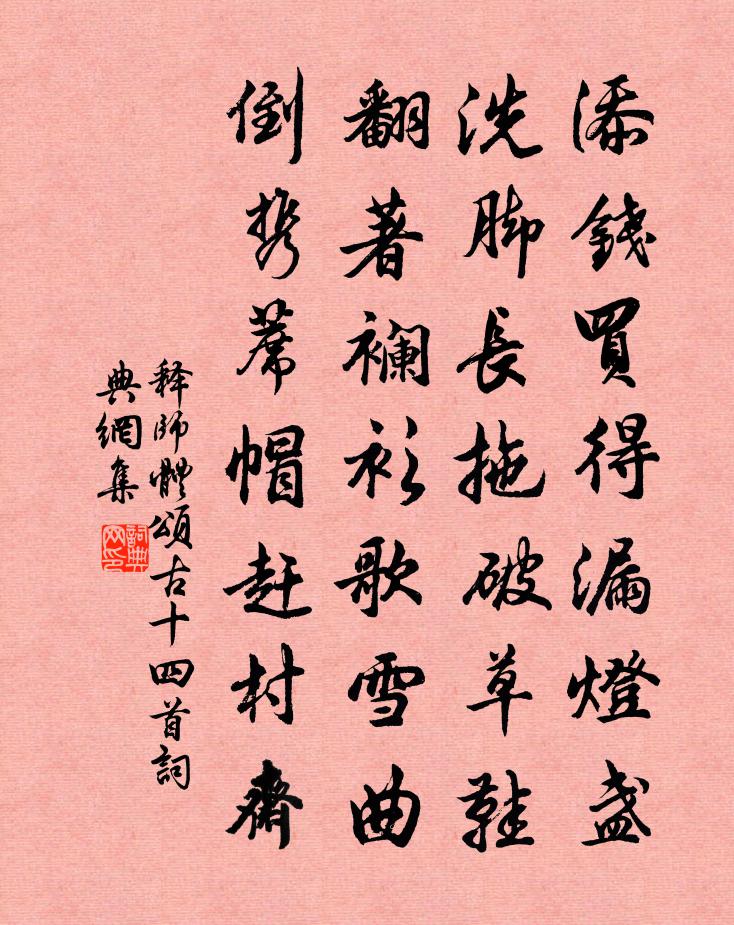 添錢買得漏燈盞
洗脚長拖破草鞋
翻著襴衫歌雪曲
倒携蓆帽赶村齋
释師體頌古十四首詞
典網集
詞典网印